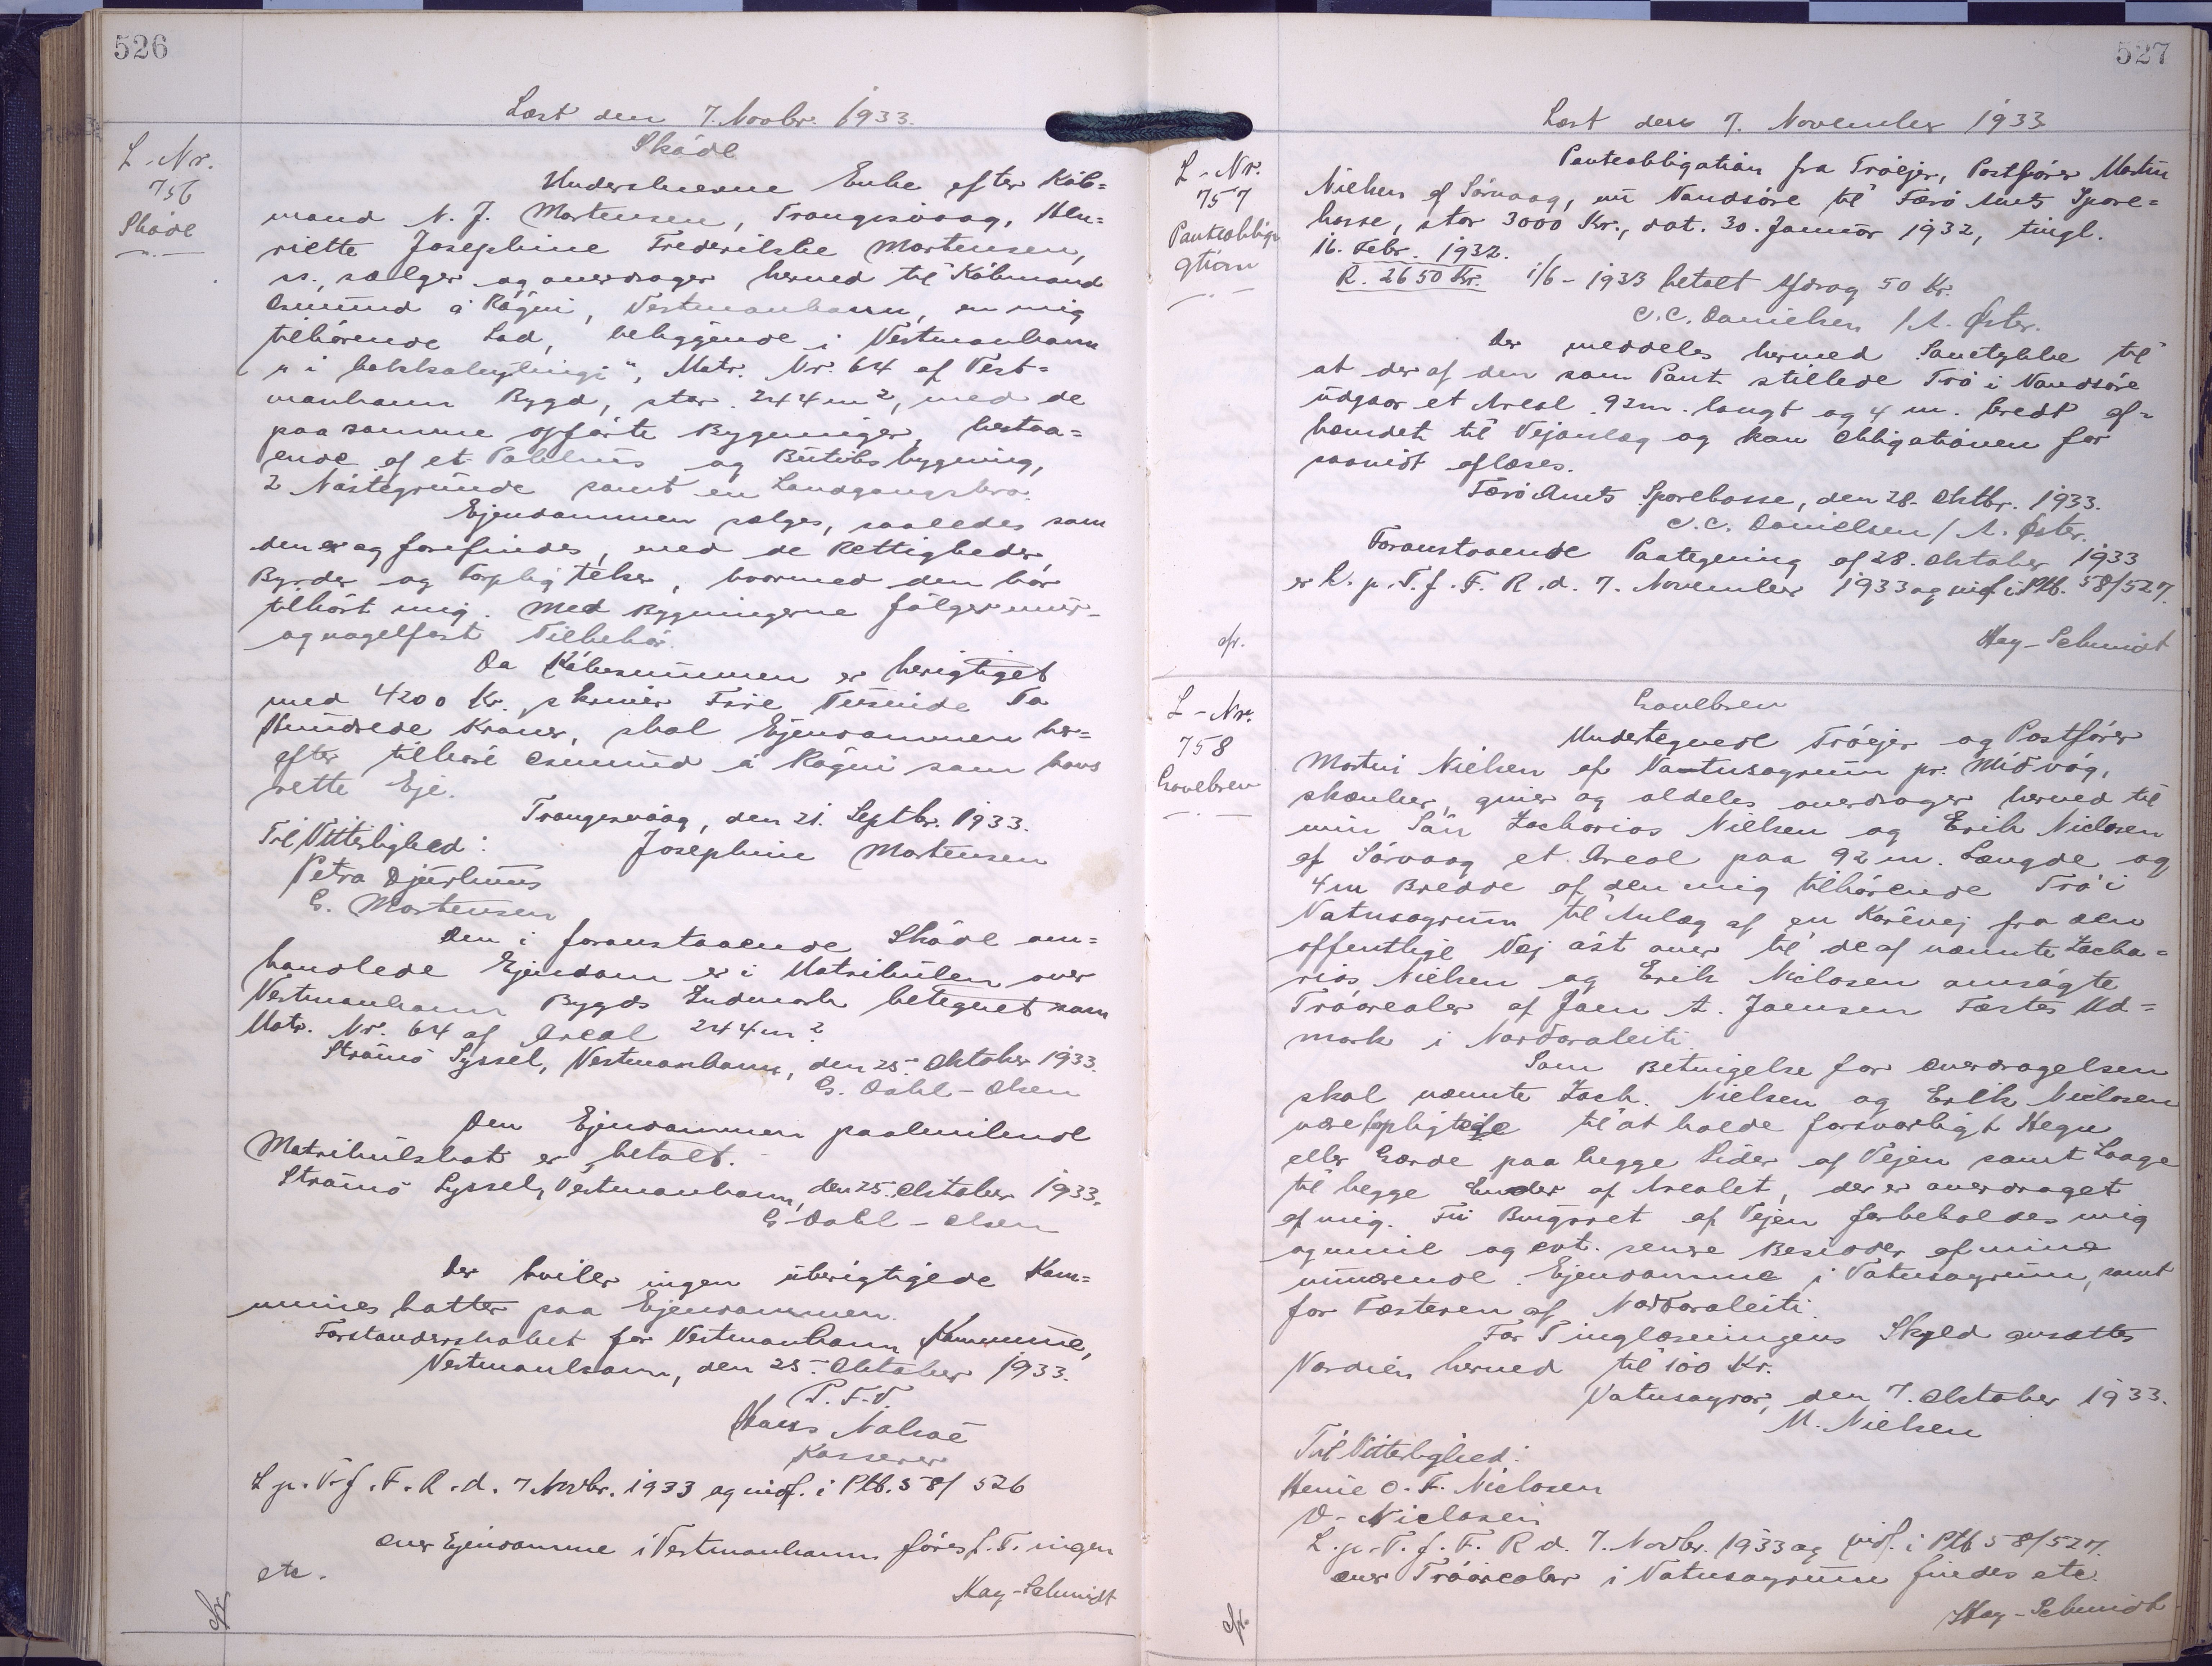 526
Læst den 7. Novbr. 1933.
L-Nr.
756
Skøde
Skøde
Underskrevne Enke efter Køb=
mand N. J. Mortensen, Trangisvaag, Hen=
riette Josephine Frederikke Mortensen,
sælger og overdrager herved til Købmand
Osmund á Rógvi, Vestmanhavn, en mig
tilhørende Lod, beliggende i Vestmanhavn
Matr. Nr. 64 af Vest=
manhavn Bygd, stor 244 m², med de
paa samme opførte Bygninger, bestaa=
ende af et Pakhus og Butiksbygning,
2 Nøstegrunde samt en Landgangsbro.
Ejendommen sælges, saaledes som
den er og forefindes, med de Rettigheder,
Byrder og Forpligtelser, hvormed den har
tilhørt mig. Med Bygningerne følger mur-
og nagelfast Tilbehør.
Da Købesummen er berigtiget
med 4200 Kr. skriver Fire Tusinde To
Hundrede Kroner, skal Ejendommen her=
efter tilhøre Osmund á Rógvi som hans
rette Eje.
Trangisvaag, den 21. Septbr. 1933.
Til Vitterlighed:
Josephine Mortensen
Petra Djurhuus
G. Mortensen
Den i foranstaaende Skøde om=
handlede Ejendom er i Matrikulen over
Vestmanhavn Bygds Indmark betegnet som
Matr. Nr. 64 af Areal 244 m²
Strømø Syssel, Vestmanhavn, den 25. Oktober 1933.
G. Dahl-Olsen
Den Ejendommen paahvilende
Matrikulskat er betalt.
Strømø Syssel, Vestmanhavn, den 25. Oktober 1933.
G. Dahl-Olsen
Der hviler ingen uberigtigede Kom=
muneskatter paa Ejendommen.
Forstanderskabet for Vestmanhavn Kommune,
Vestmanhavn, den 25. Oktober 1933.
P. F. V.
Hans Nolsøe
Kasserer
L. p. T. f. F. R. d. 7 Novbr. 1933 og indf. i Ptb. 58/526
Over Ejendomme i Vestmanhavn føres f. T. ingen
etc.
Hay-Schmidt
cfr.
527
Læst den 7. November 1933
L-Nr.
757
Panteobliga
gtion
Panteobligation fra Trøejer, Postfører Martin
Nielsen af Sørvaag, nu Vandsøre til Færø Amts Spare=
kasse, stor 3000 Kr., dat. 30. Januar 1932, tingl.
16. Febr. 1932.
R. 2650 Kr. 1/6-1933 betalt Afdrag 50 Kr.
C. C. Danielsen / A. Øster.
Der meddeles hermed Samtykke til
at der af den som Pant stillede Trø i Vandsøre
udgaar et Areal 92 m. langt og 4 m. bredt af=
hændet til Vejanlæg og kan Obligationen for
saavidt aflæses.
Færø Amts Sparekasse, den 28. Oktbr. 1933.
C. C. Danielsen / A. Øster.
Foranstaaende Paategning af 28. Oktober 1933
er L. p. T. f. F. R. d. 7. November 1933 og indf. i Ptb. 58/527.
cfr.
Hay-Schmidt
L-Nr.
758
Gavebrev
Gavebrev
Undertegnede Trøejer og Postfører
Martin Nielsen af Vatnsoyrum pr. Miðvág,
skænker, giver og aldeles overdrager herved til
min Søn Zacharias Nielsen og Erik Niclasen
af Sørvaag et Areal paa 92 m. Længde og
4 m Bredde af den mig tilhørende Trø i
Vatnsoyrum til Anlæg af en Kørevej fra den
offentlige Vej øst over til de af nævnte Zacha=
rias Nielsen og Erik Niclasen ansøgte
Trøarealer af Joen A. Joensen Fæstes Ud=
mark i Norðoraleiti.
Som Betingelse for Overdragelsen
skal nævnte Zach. Nielsen og Erik Niclasen
være forpligtede til at holde forsvarligt Hegn
eller Gærde paa begge Sider af Vejen samt Laage
til begge Ender af Arealet, der er overdraget
af mig. Fri Brugsret af Vejen forbeholdes mig
og mine og evt. senere Besidder af mine
nuværende Ejendomme i Vatnsoyrum, samt
for Fæsteren af Norðoraleiti.
For Tinglæsningens Skyld ansættes
Værdien herved til 100 Kr.
Vatnsoyrar, den 7. Oktober 1933.
M. Nielsen
Til Vitterlighed:
O. F. Niclasen
D. Niclasen
L. p. T. f. F. R d. 7. Novbr. 1933 og indf. i Ptb 58/527.
Over Trøarealer i Vatnsoyrum findes etc.
Hay-Schmidt
cfr.